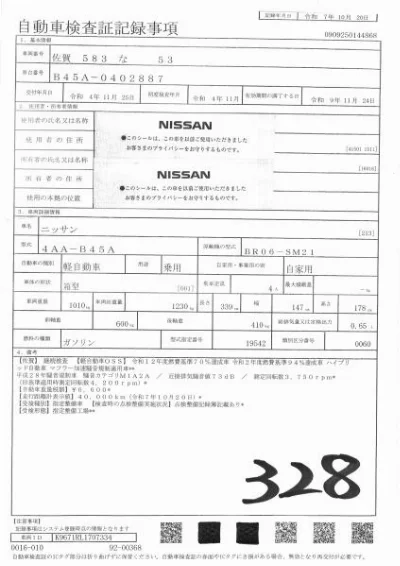 自動車検査証記録事項
記録年月日 令和 7年10月20日
0909250144868
1. 基本情報
車両番号 佐賀 583 な 53
車台番号 B45A-0402887
交付年月日 令和 4年11月25日 初度検査年月 令和 4年11月 有効期間の満了する日 令和 9年11月24日
2. 所有者・使用者情報
使用者の氏名又は名称
使用者の住所
所有者の氏名又は名称
所有者の住所
使用の本拠の位置
NISSAN
●このシールは、この車を以前ご使用いただきました
お客さまのプライバシーをお守りするものです。
NISSAN
●このシールは、この車を以前ご使用いただきました
お客さまのプライバシーをお守りするものです。
3. 車両詳細情報
車名 ニッサン
型式 4AA-B45A 原動機の型式 BR06-SM21
自動車の種別 軽自動車 用途 乗用 自家用・事業用の別 自家用
車体の形状 箱型 乗車定員 4人 最大積載量 -kg
車両重量 1010kg 車両総重量 1230kg 長さ 339cm 幅 147cm 高さ 178cm
前軸重 600kg 後軸重 410kg 総排気量又は定格出力 0.65
燃料の種類 ガソリン 型式指定番号 19542 類別区分番号 0060
4. 備考
[佐賀] 継続検査 【軽自動車OSS】 令和12年度燃費基準70%達成車 令和2年度燃費基準94%達成車 ハイブリ
ッド自動車 マフラー加速騒音規制適用車**
平成28年騒音規制車 騒音カテゴリM1A2A / 近接排気騒音値73dB / 測定回転数3,750rpm*
[自動車重量税額]¥6,600*
[走行距離計表示値]40,000km(令和7年10月20日)*
[受検種別]指定整備車 [検査時の点検整備実施状況]点検整備記録簿記載あり*
[受検形態]指定整備工場**
328
【注意事項】
記録事項はシステム登録時点の情報となります
車両ID K9671RL1707334
0016-010 92-00368